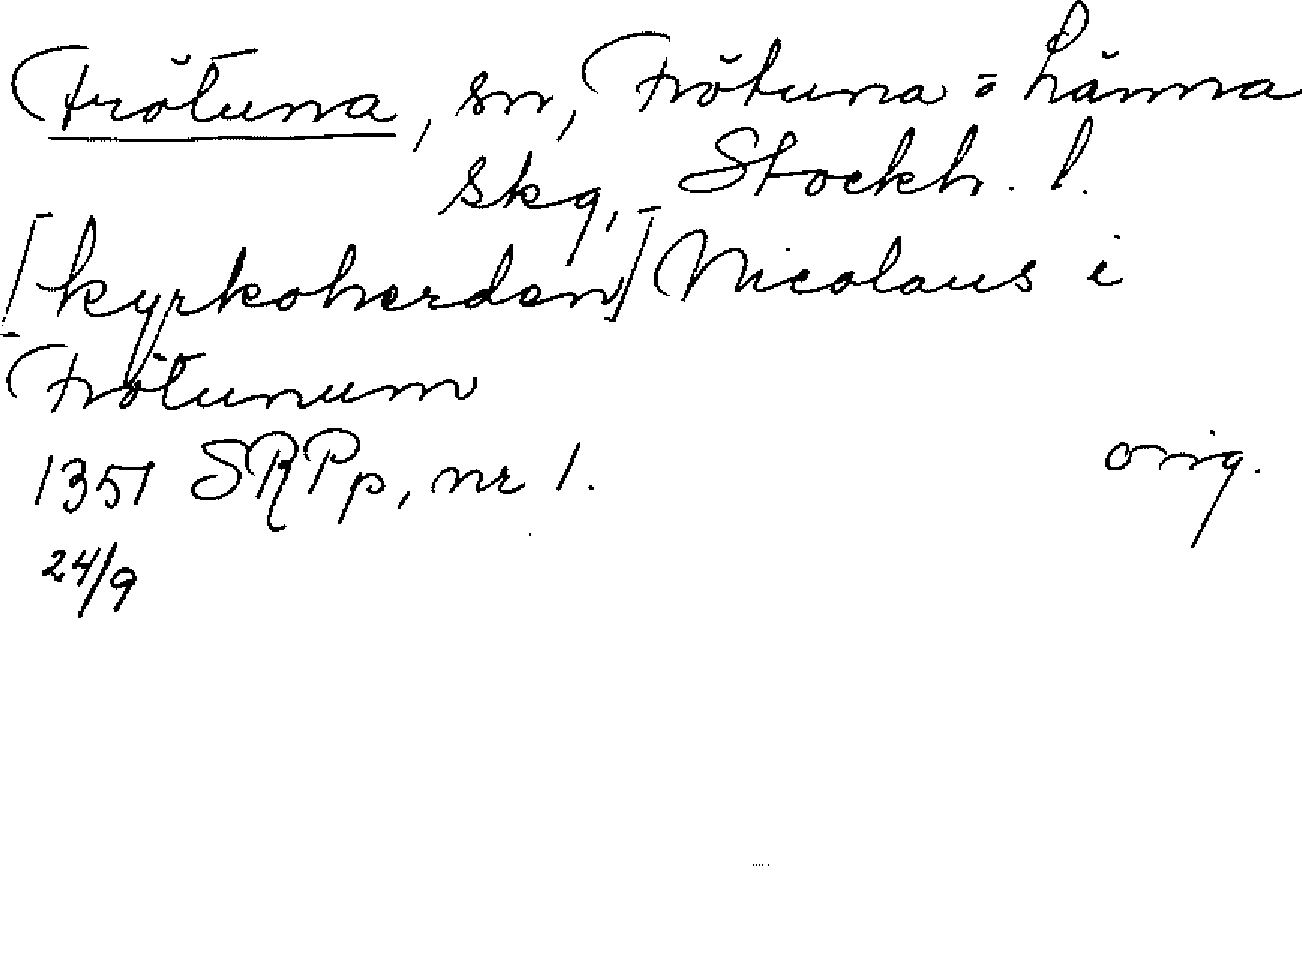 Frötuna, sn, Frötuna o Länna
skg, Stockh. l.
[kyrkoherden] Nicolaus i
Frötunum
1351 SRPp, nr 1. orig.
24/9